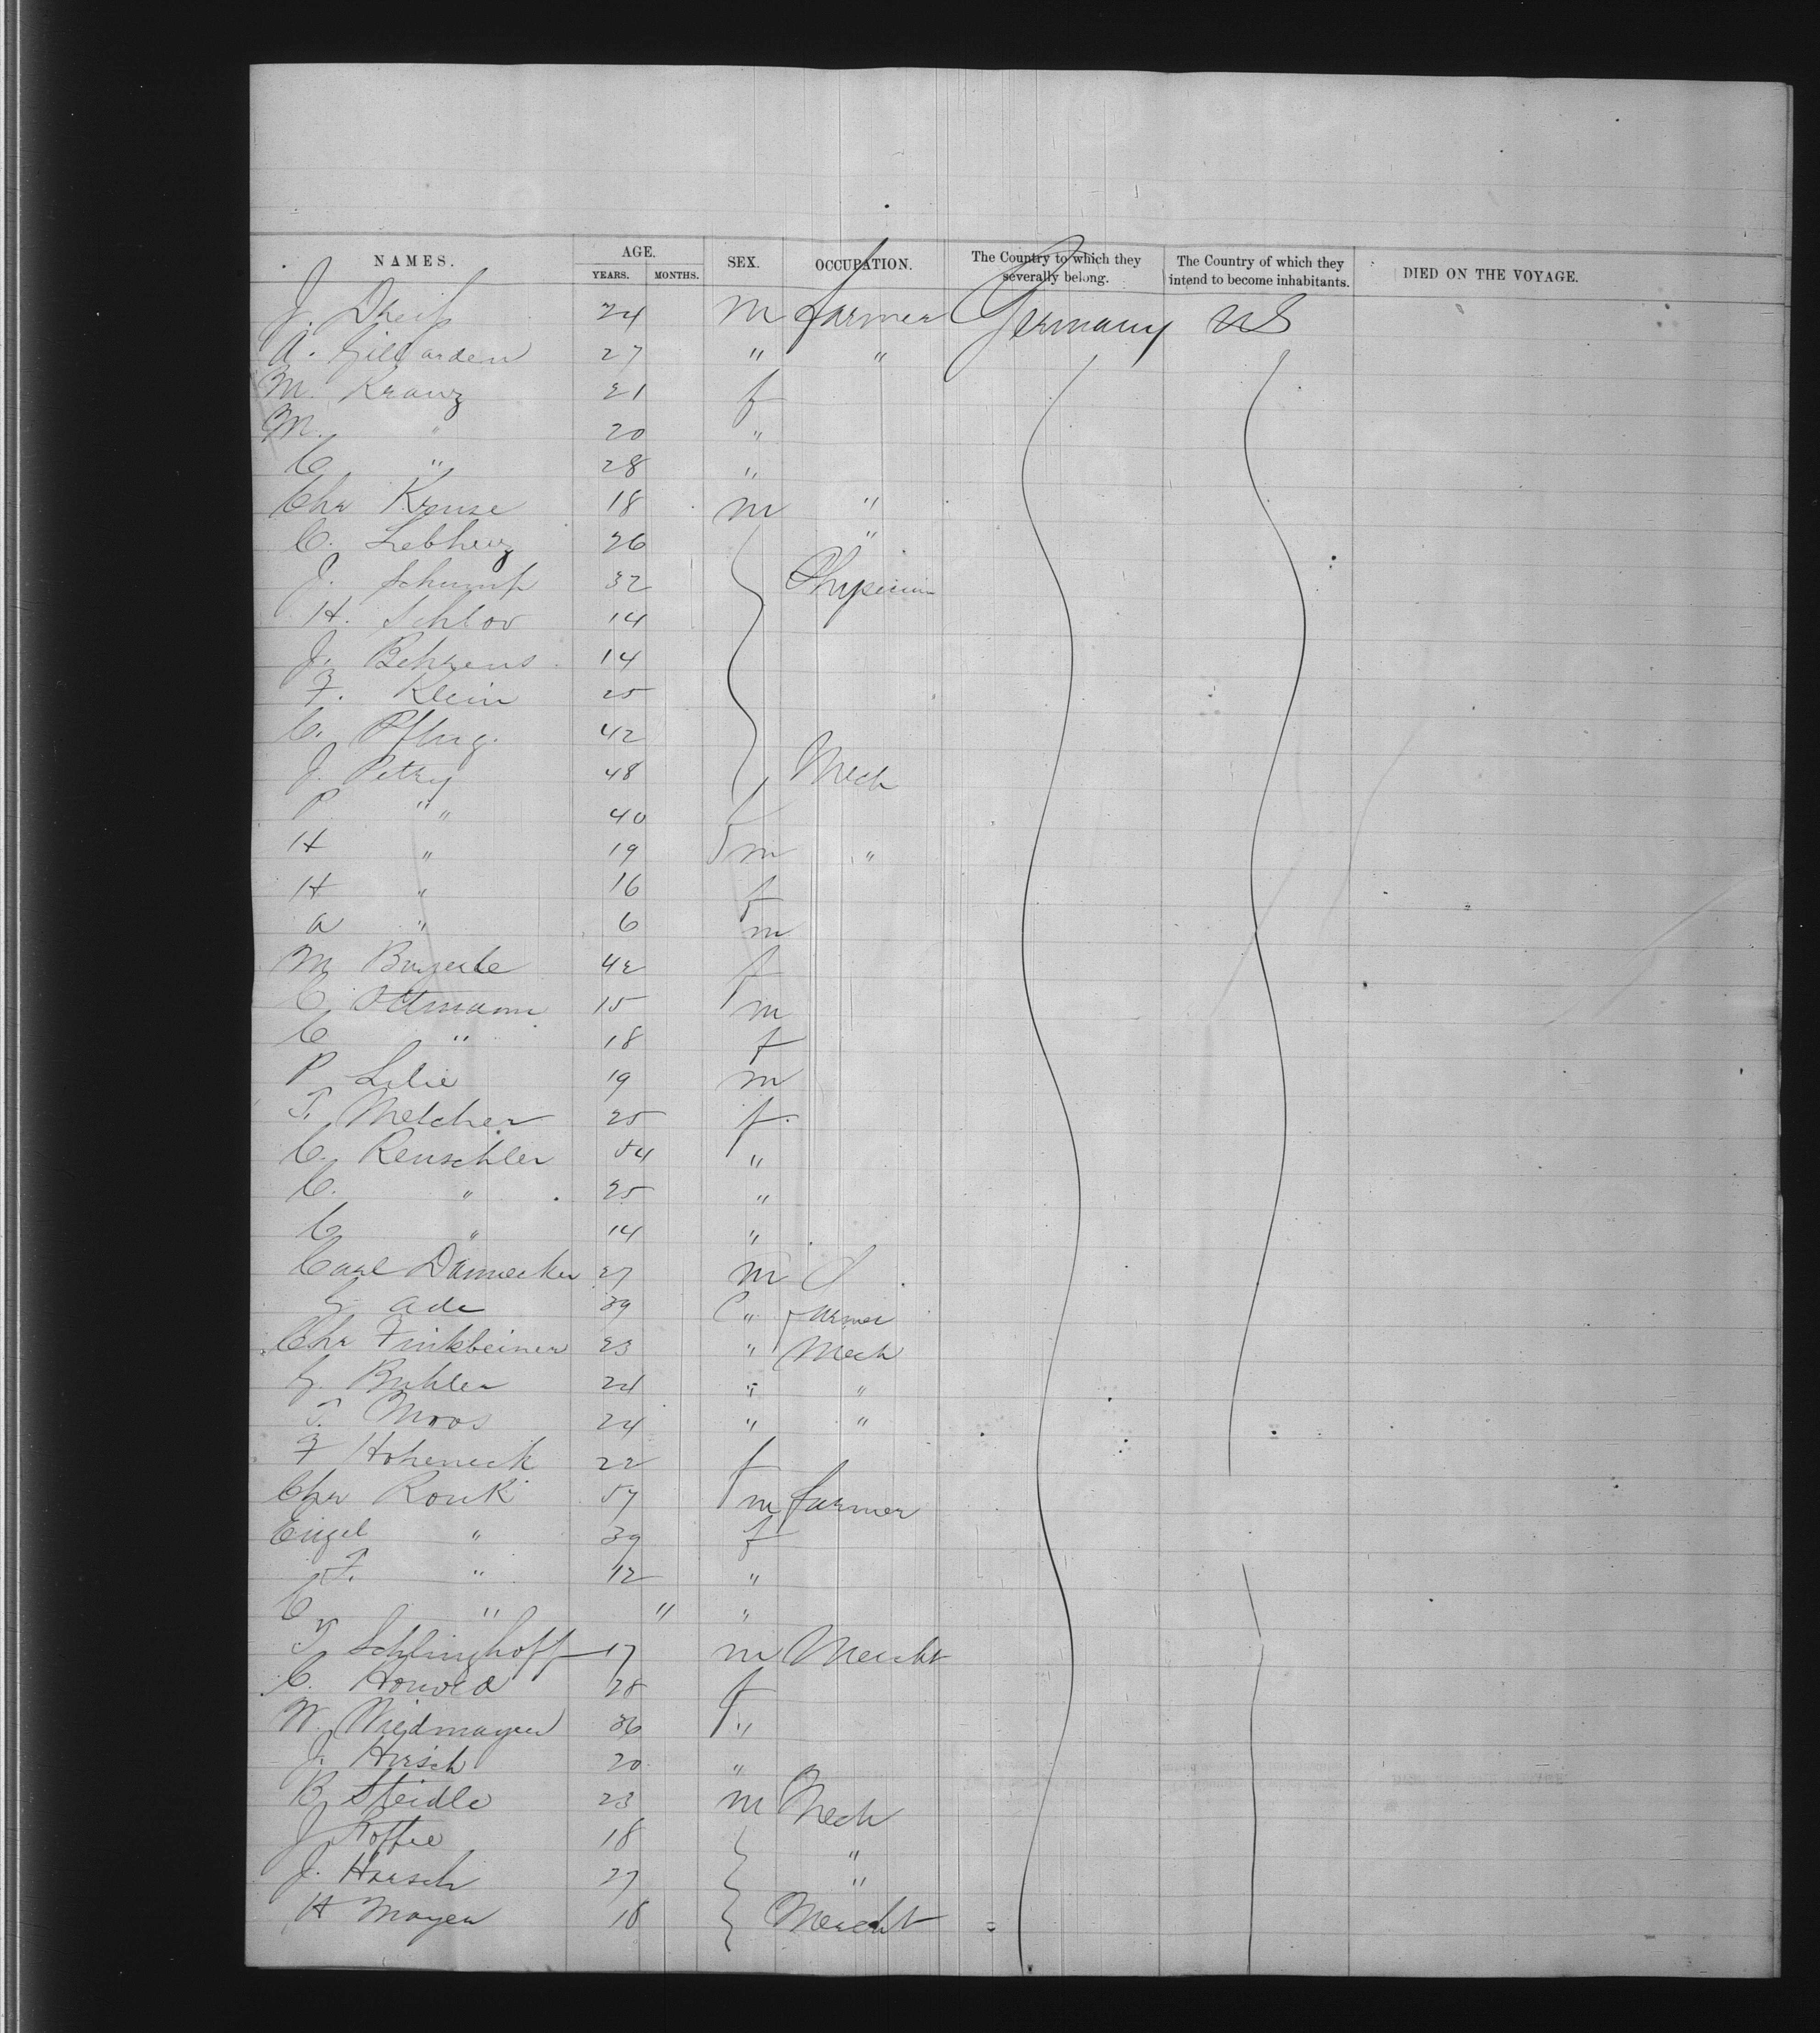 NAMES. AGE. SEX. OCCUPATION. The Country to which they severally belong. The Country of which they intend to become inhabitants. DIED ON THE VOYAGE.
YEARS. MONTHS.
J. 24 m farmer Germany US
A. Gillgarden 27 " "
M. Kranz 21 f
M. " 20 "
C " 28 "
Chr Kruse 18 m "
C. Liebherz 26 "
J. Schumph 32 Physician
H. Schlov 14
J. Behrens 14
F. Klein 25
C. Pflug. 42
J. Petry 48 Mech
P. " " 40 f
H " 19 m "
H " 16 f
A " 6 m
M Bayerle 42 f
C. Ottmann 15 m
C " 18 f
P Lilie 19 m
T. Melcher 25 f
C. Renschler 54 "
C. " 25 "
C " 14 "
Carl Dannecker 27 m
G Ade 39 " farmer
Chr Finkbeiner 23 " Mech
G. Buhler 24 " "
T. Moos 24 " "
F Hoheneck 22 f
Chr Rouk 57 m farmer
Engel " 39 f
F. " 12 "
C " " "
T Schlinghoff 17 m Mercht
C. 28 f
W. Wiedmayer 36 "
J. Hirsch 20 "
B. Steidle 23 m Mech
J. 18 "
J. Harsch 27 "
H Mayer 18 Mercht